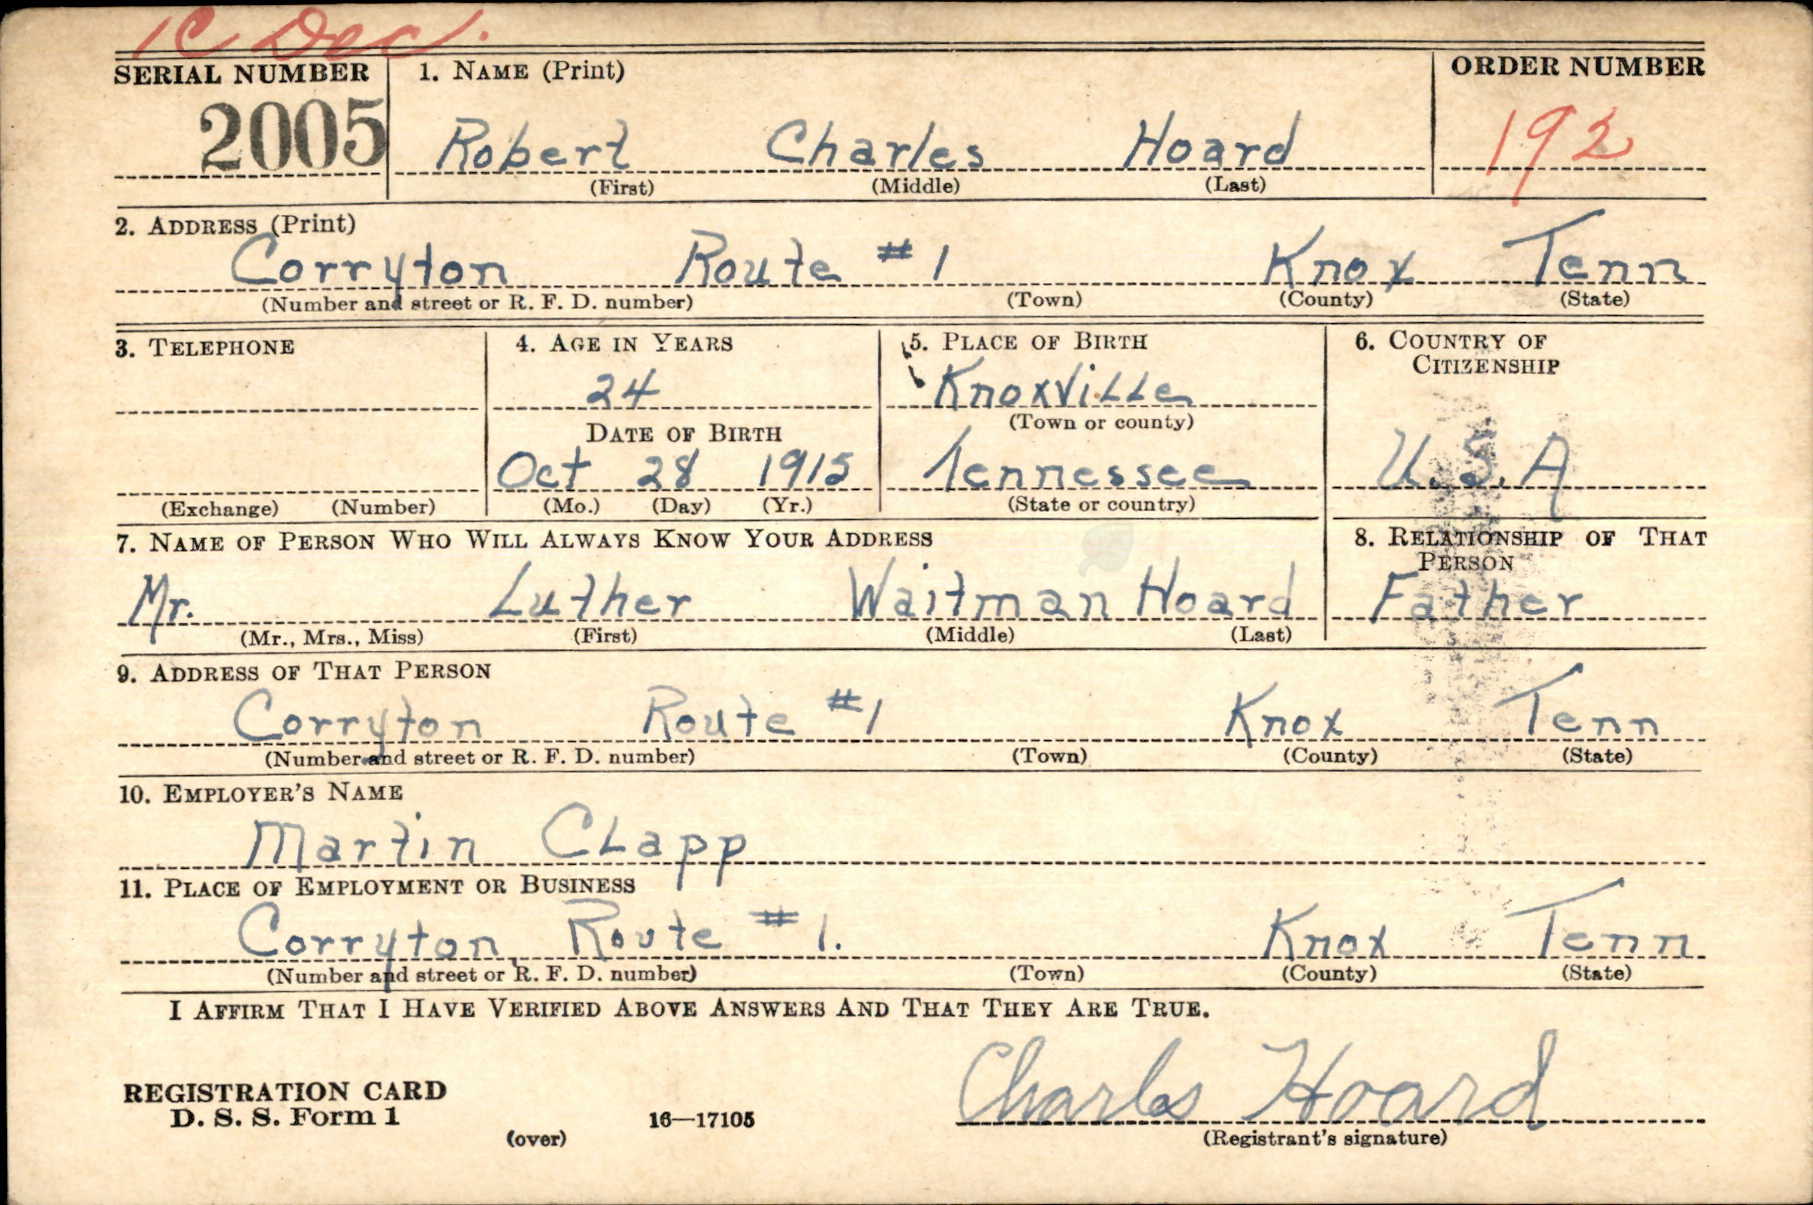 1C Dec.
SERIAL NUMBER 1. NAME (Print) ORDER NUMBER
2005 Robert Charles Hoard 192
(First) (Middle) (Last)
2. ADDRESS (Print)
Corryton Route #1 Knox Tenn
(Number and street or R. F. D. number) (Town) (County) (State)
3. TELEPHONE 4. AGE IN YEARS 5. PLACE OF BIRTH 6. COUNTRY OF
CITIZENSHIP
24 Knoxville
DATE OF BIRTH (Town or county)
Oct 28 1915 Tennessee U.S.A
(Exchange) (Number) (Mo.) (Day) (Yr.) (State or country)
7. NAME OF PERSON WHO WILL ALWAYS KNOW YOUR ADDRESS 8. RELATIONSHIP OF THAT
PERSON
Mr. Luther Waitman Hoard Father
(Mr., Mrs., Miss) (First) (Middle) (Last)
9. ADDRESS OF THAT PERSON
Corryton Route #1 Knox Tenn
(Number and street or R. F. D. number) (Town) (County) (State)
10. EMPLOYER'S NAME
Martin Clapp
11. PLACE OF EMPLOYMENT OR BUSINESS
Corryton Route #1. Knox Tenn
(Number and street or R. F. D. number) (Town) (County) (State)
I AFFIRM THAT I HAVE VERIFIED ABOVE ANSWERS AND THAT THEY ARE TRUE.
Charles Hoard
REGISTRATION CARD
D. S. S. Form 1 16—17105
(over) (Registrant's signature)